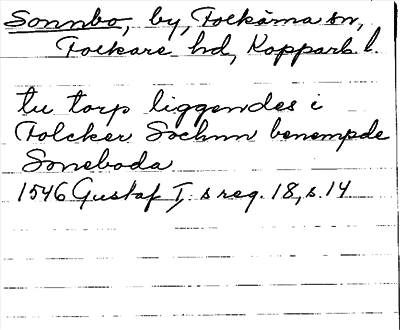 Sonnbo, by, Folkärna sn,
Folkare hd, Kopparb. l.
tu torp liggendes i
Folcker Sochnn benempde
Soneboda
1546 Gustaf I:s reg. 18, s. 14.